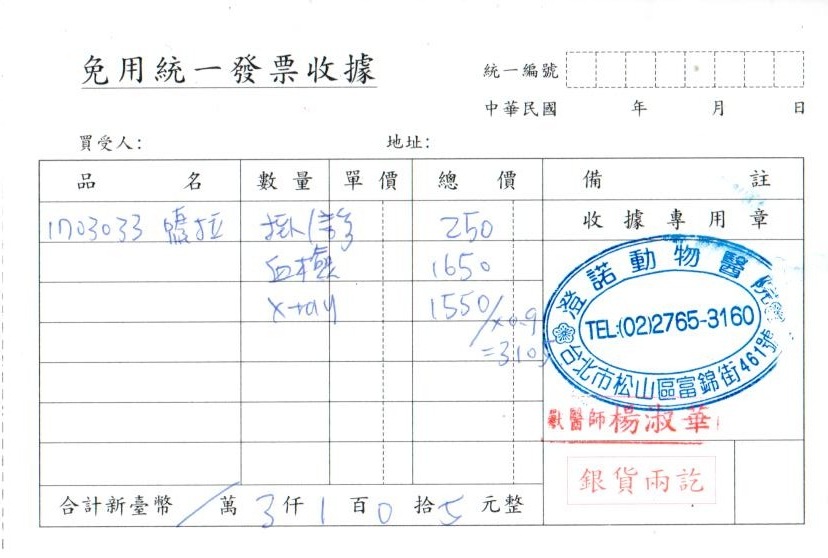 免用統一發票收據
統一編號
中華民國 年 月 日
買受人: 地址:
品名 數量 單價 總價 備註
收據專用章
1703033 掛/診 250
血檢 1650
x-ray 1550/x0.9
=3105
澄諾動物醫院
TEL:(02)2765-3160
台北市松山區富錦街461號
獸醫師楊淑華
銀貨兩訖
合計新臺幣/萬3仟1百0拾5元整